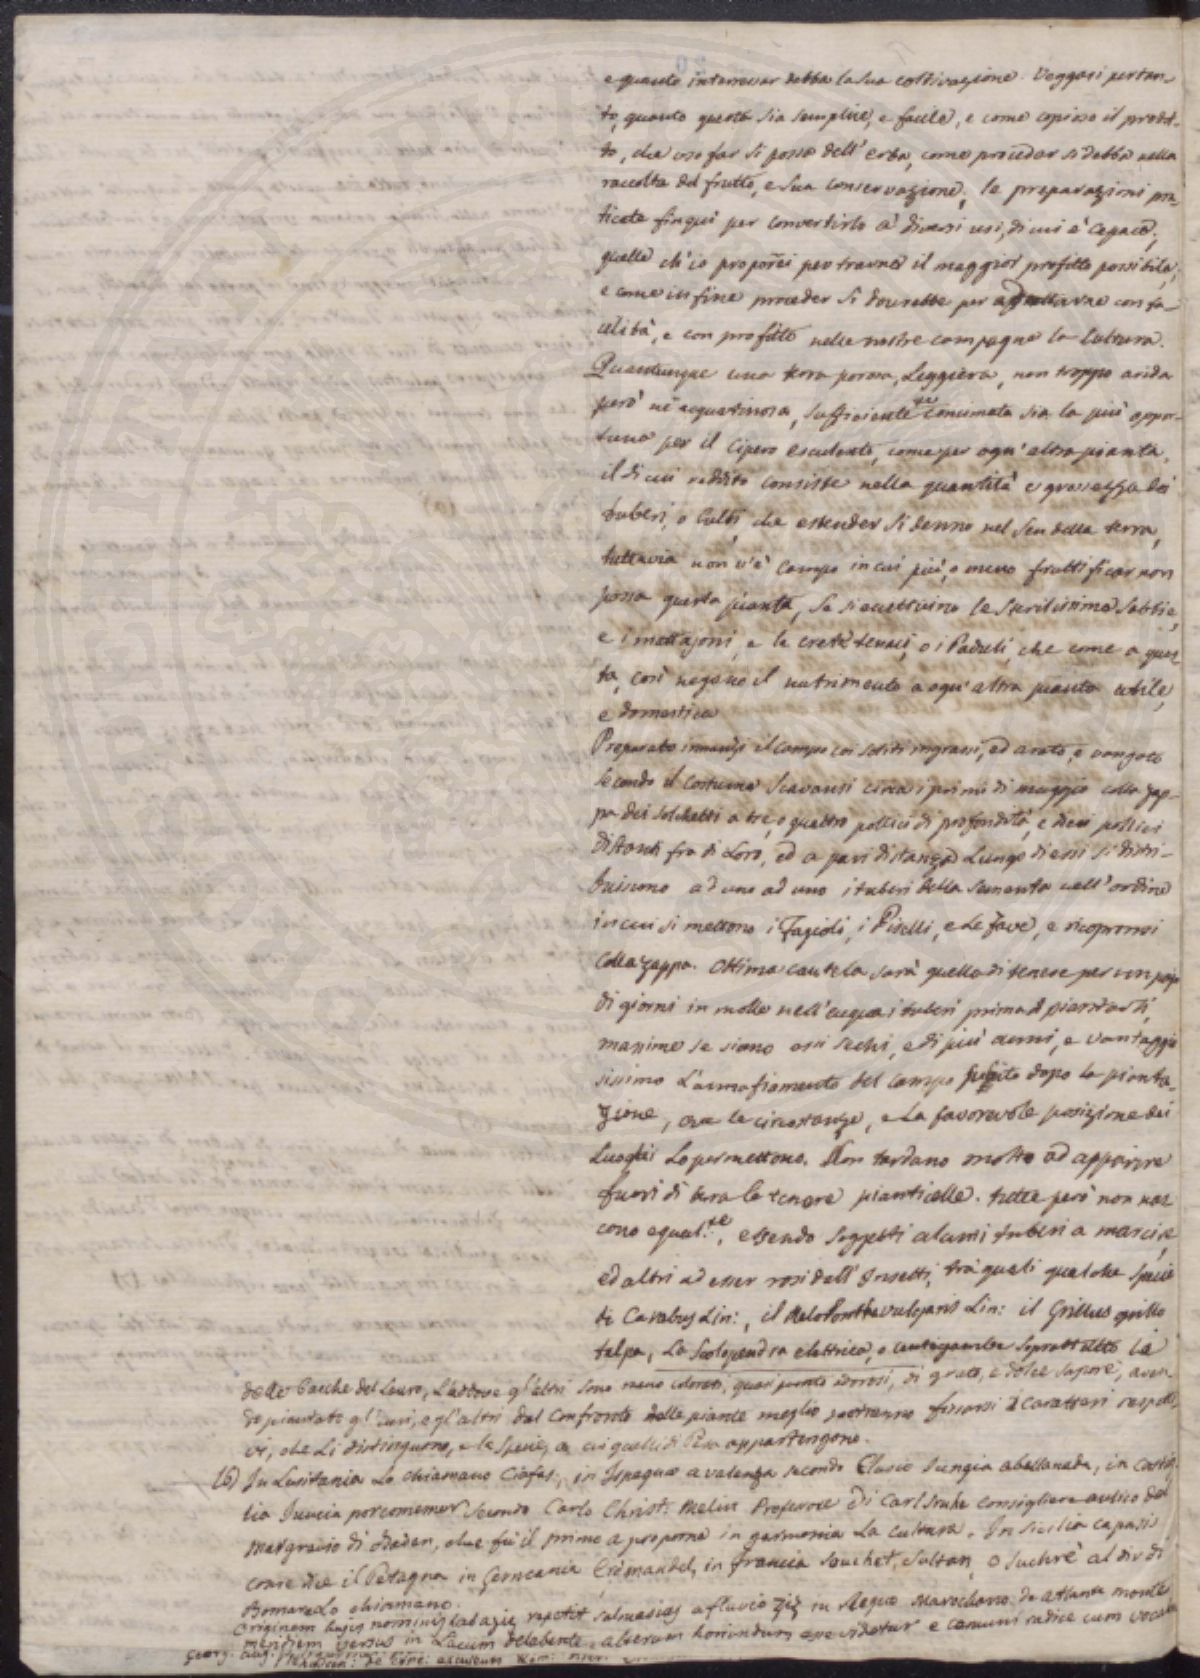 e quanto interessar debba la sua coltivazione. Veggasi pertan-
to, quanto questa sia semplice, e facile, e come copioso il prodot-
to, che uso far si possa dell'erba, come proceder si debba nella
raccolta del frutto, e sua conservazione, le preparazioni pra-
ticate finqui per convertirlo a diversi usi, di cui è capace,
quelle ch'io proporrei per trarne il maggior profitto possibile,
e come in fine proceder si dovrebbe per adottarne con fa-
cilità, e con profitto nelle nostre campagne la cultura.
Quantunque una terra porosa, leggiera, non troppo arida
però nè acquatinosa, sufficiente.te concimata sia la più oppor-
tuna per il Cipero esculento, come per ogn'altra pianta,
il di cui reddito consiste nella quantità e grossezza dei
tuberi, o bulbi, che estender si denno nel sen della terra,
tuttavia non v'è campo in cui più, o meno fruttificar non
possa questa pianta, se si eccettuino le sterilissime sabbie,
e i mattajoni, e le crete tenaci, o i Paduli, che come a ques-
ta, così negano il nutrimento a ogn'altra pianta utile,
e domestica
Preparato innanzi il campo coi soliti ingrassi, ed arato, e vangato
secondo il costume scavansi circa i primi di maggio colla zap-
pa dei solchetti a tre, o quattro pollici di profondità, e dieci pollici
distanti fra di loro, ed a pari distanza lungo di essi si distri-
buiscono ad uno ad uno i tuberi della sementa nell'ordine
in cui si mettono i Fagioli, i Piselli, e le Fave, e ricopronsi
colla zappa. Ottima cautela sarà quella di tenere per un pajo
di giorni in molle nell'acqua i tuberi prima di piantarli,
massime se siano essi secchi, e di più anni, e vantaggio-
sissimo l'annaffiamento del campo subito dopo la pianta-
zione, ove le circostanze, e la favorevole posizione dei
luoghi lo permettono. Non tardano molto ad apparire
fuori di terra le tenere pianticelle. tutte però non nas-
cono equal.te, essendo soggetti alcuni tuberi a marcire,
ed altri ad esser rosi dall'Insetti, tra quali qualche specie
di Carabus Lin:, il Melolontha vulgaris Lin: il Grillus grillo
talpa, la Scolopendra elettrica, o centogambe soprattutto la
delle bacche del Lauro, l'odore gl'altri sono meno colorati, quasi punto odorosi, di grato, e dolce sapore, aven-
do piantato gl'uni, e gl'altri dal confronto delle piante meglio potranno fissarsi i caratteri rispetti-
vi, che li distinguono, e la specie, a cui quelli di Pisa appartengono.
(6) In Lusitania lo chiamano Ciofas, in Ispagna a Valenza secondo Clusio Iungia abellanada, in Casti-
lia Juncia secondo Carlo Christ: Professore di Carlsruhe consigliere aulico del
Margravio di Baden, che fù il primo a proporne in Germania la cultura. In Sicilia capasi
come dice il Petagna in Germania Erdmandel, in Francia Souchet, Sultan, o Sucré al dir di
Bomare lo chiamano.
Originem hujus nominis repetit Salmasius a fluvio Ziz in Regno Marochano de Atlante monte
versus in Lacum delabente, alterum videatur e communi radice cum